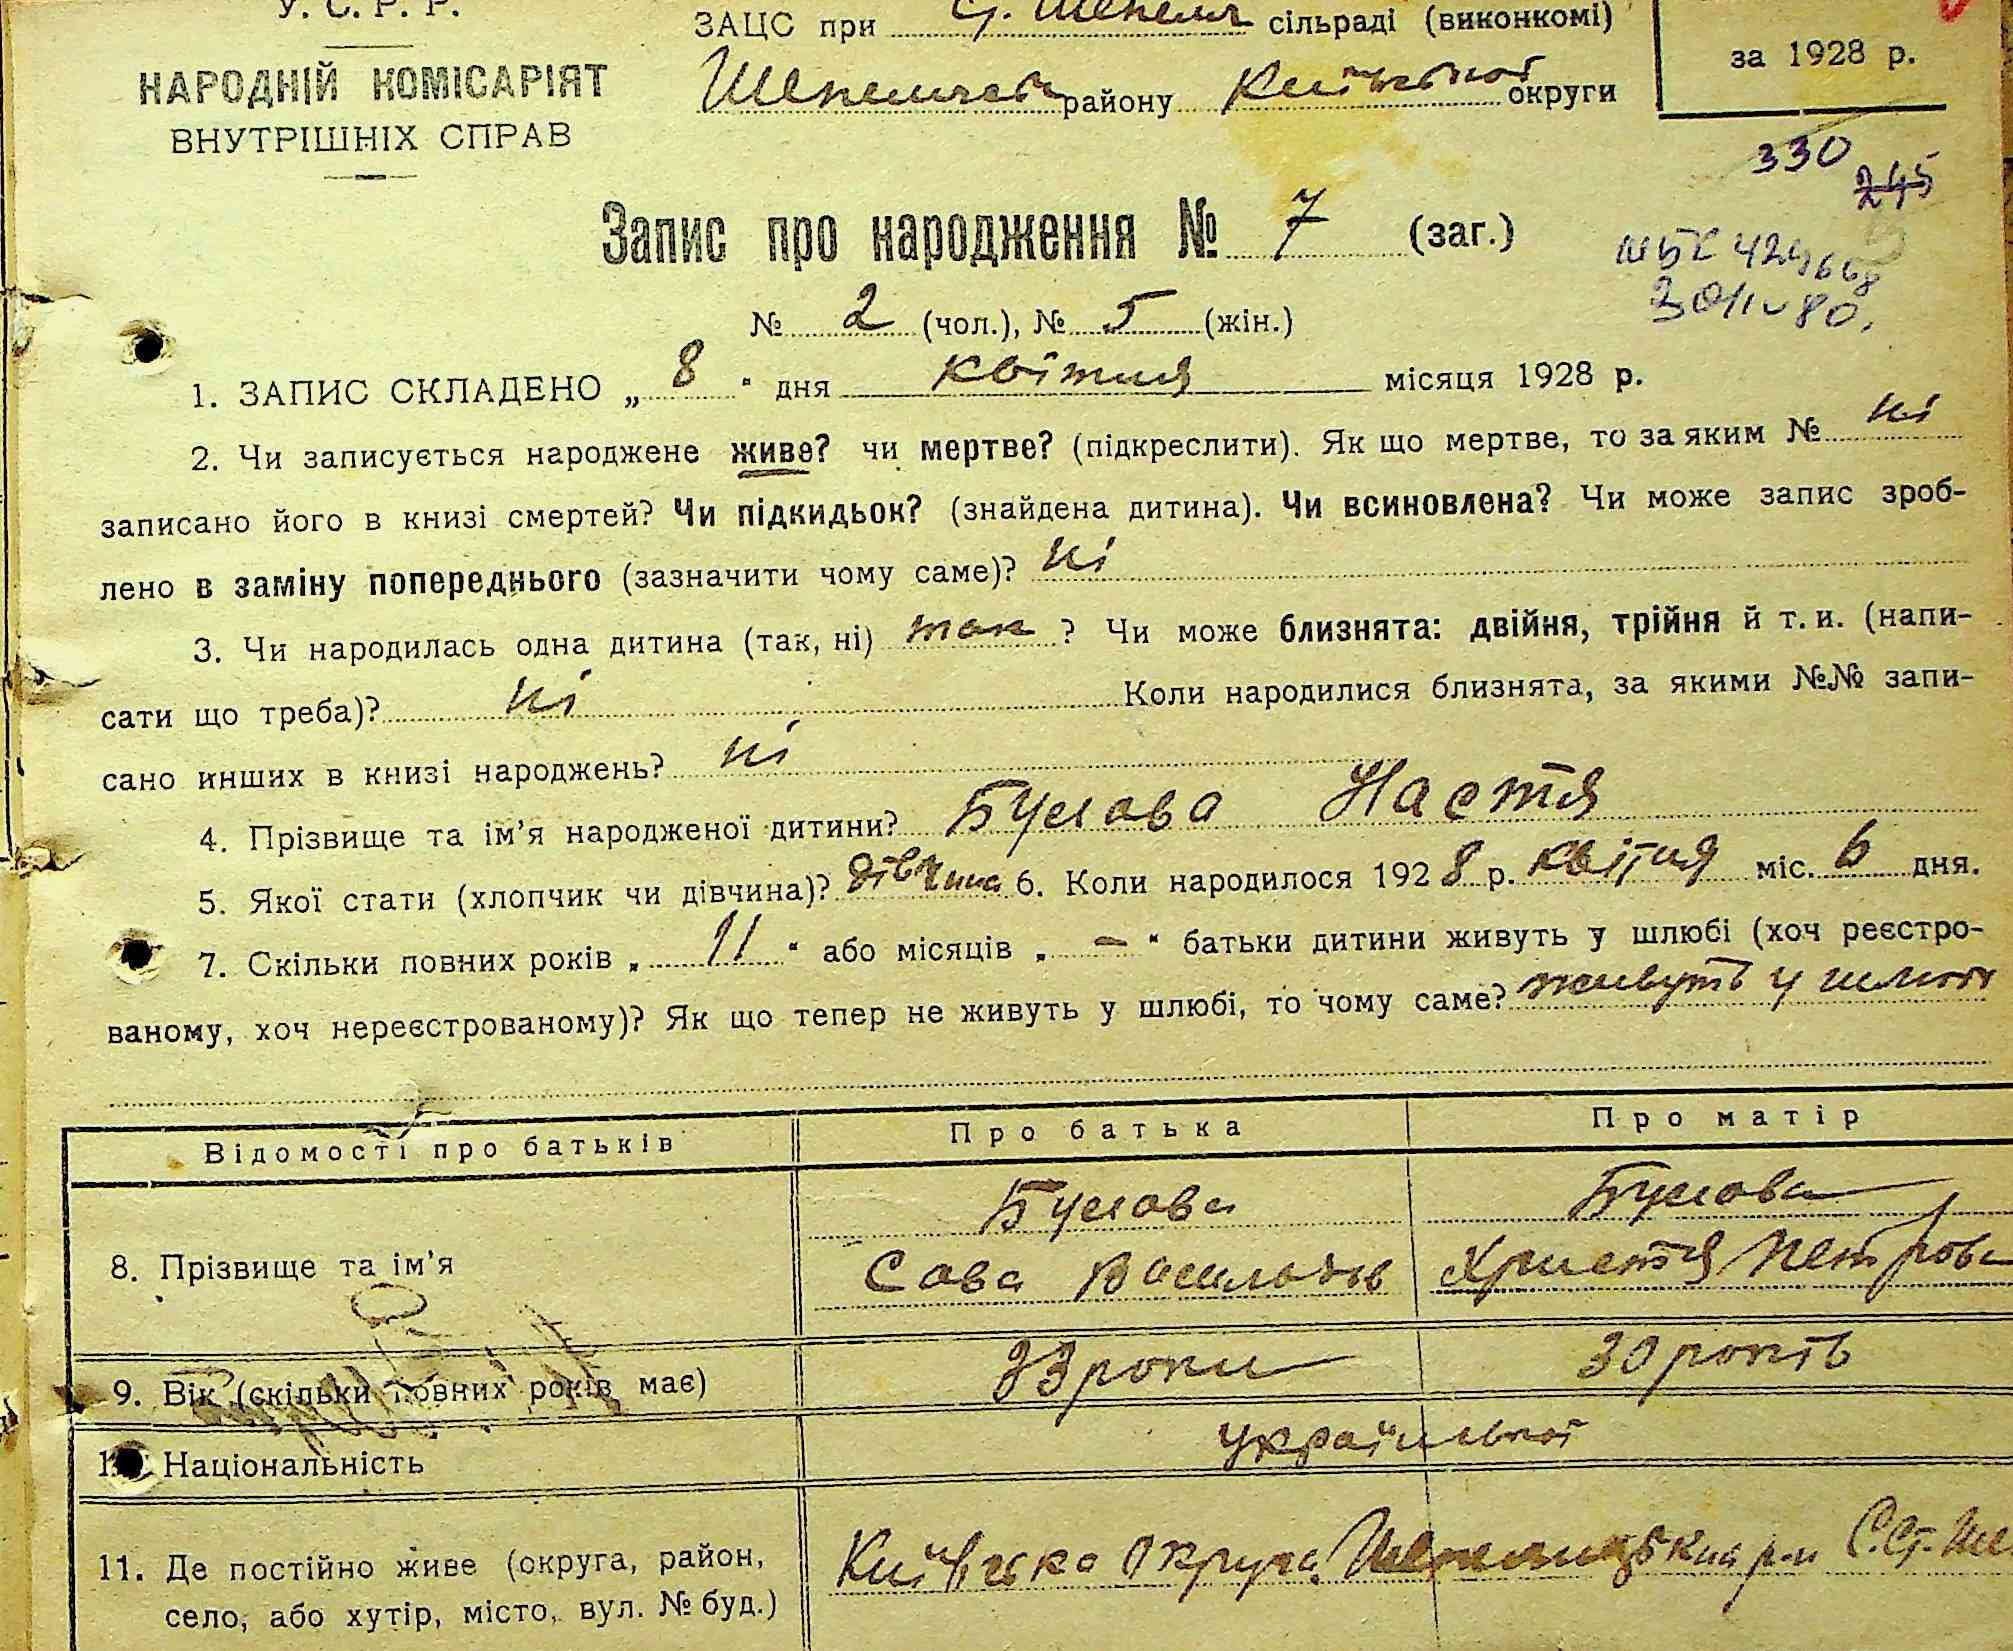 У. С. Р. Р.
НАРОДНІЙ КОМІСАРІЯТ
ВНУТРІШНІХ СПРАВ
ЗАЦС при Ст. Шепели сільраді (виконкомі)
району Київської округи
за 1928 р.
330
245
Запис про народження № 7 (заг.)
№ 2 (чол.), № 5 (жін.)
1. ЗАПИС СКЛАДЕНО „ 8 " дня квітня місяця 1928 р.
2. Чи записується народжене живе? чи мертве? (підкреслити). Як що мертве, то за яким № ні
записано його в книзі смертей? Чи підкидьок? (знайдена дитина). Чи всиновлена? Чи може запис зроб-
лено в заміну попереднього (зазначити чому саме)? ні
3. Чи народилась одна дитина (так, ні) так ? Чи може близнята: двійня, трійня й т. и. (напи-
сати що треба)? ні Коли народилися близнята, за якими №№ запи-
сано инших в книзі народжень? ні
4. Прізвище та ім'я народженої дитини? Настя
5. Якої стати (хлопчик чи дівчина)? дівчина 6. Коли народилося 1928 р. квітня міс. 6 дня.
7. Скільки повних років „ 11 " або місяців „ – " батьки дитини живуть у шлюбі (хоч реєстро-
ваному, хоч нереєстрованому)? Як що тепер не живуть у шлюбі, то чому саме? живуть у шлюбі
Відомості про батьків Про батька Про матір
8. Прізвище та ім'я
Сава Васильов Христя Петрова
9. Вік (скільки повних років має) 33 роки 30 років
10. Національність української
11. Де постійно живе (округа, район,
село, або хутір, місто, вул. № буд.)
Київська округа р-н С. Ст. Ше